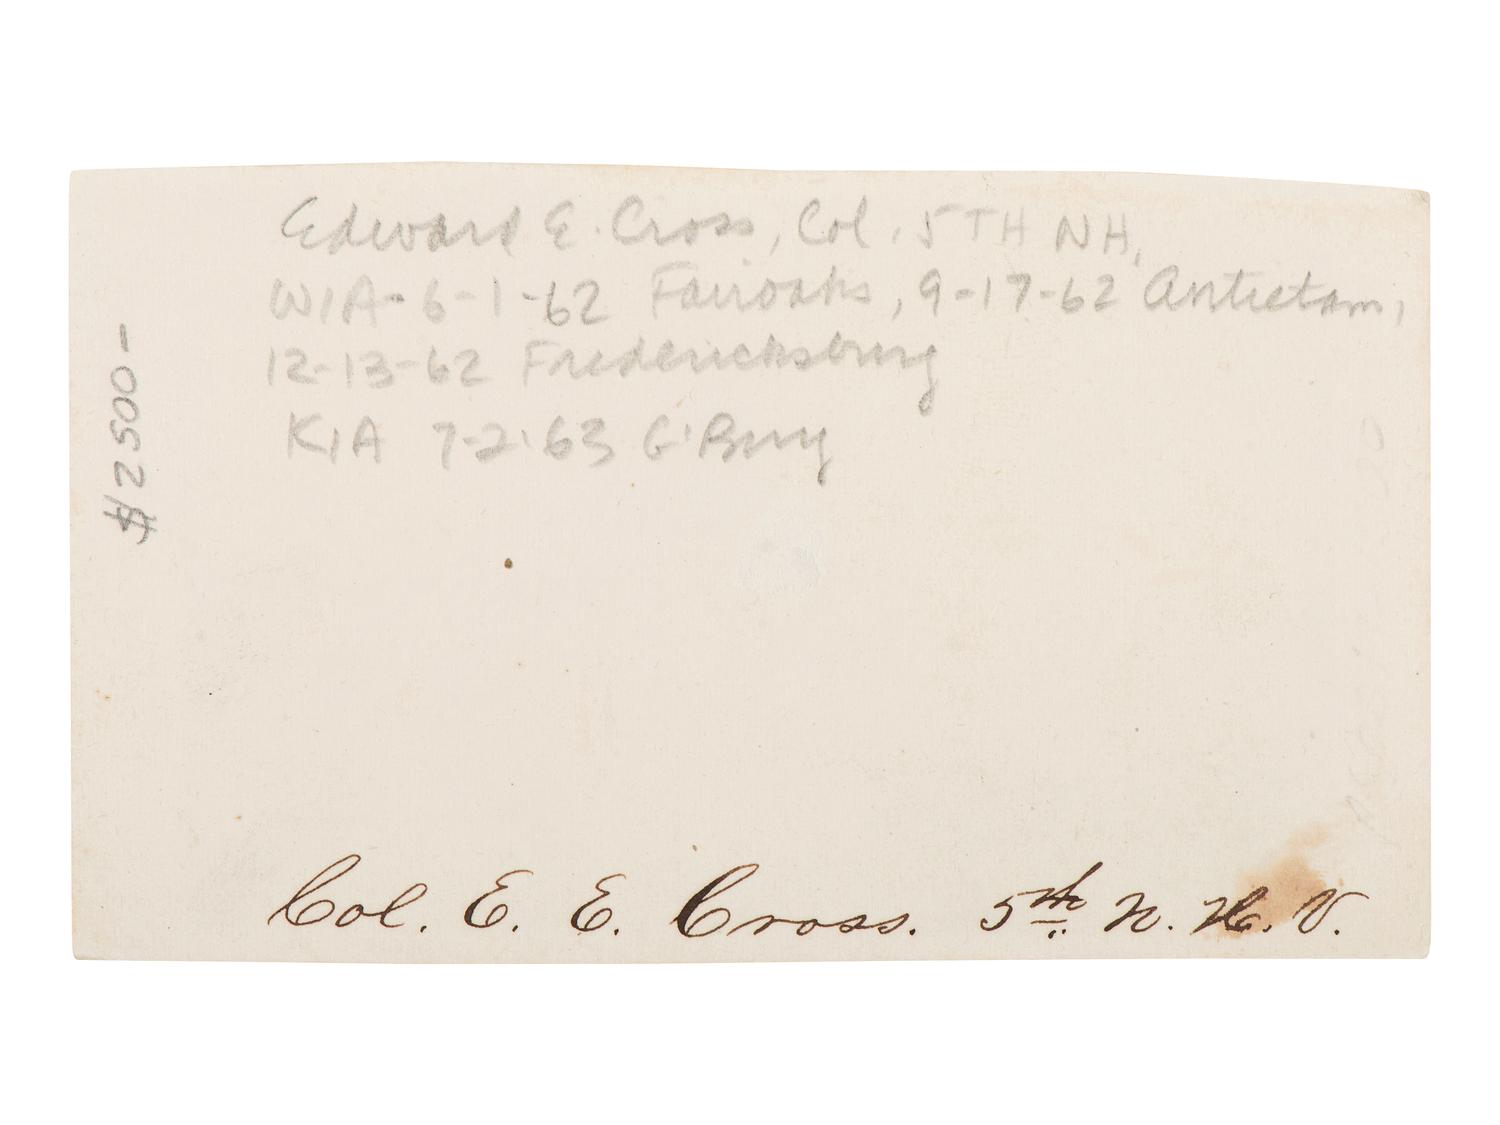 Edward E. Cross, Col. 5TH NH,
WIA- 6-1-62 Fairoaks, 9-17-62 Antietam,
12-13-62 Fredericksburg
KIA 7-2-63 G'Burg
$2500-
Col. E. E. Cross. 5th N. H. V.